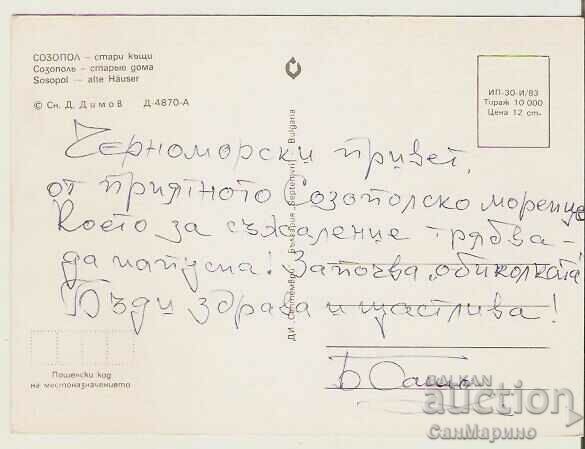 СОЗОПОЛ – стари къщи
Созополь – старые дома
Sosopol – alte Häuser
© Сн. Д. Димов Д-4870-А
ИП-30-И/83
Тираж 10 000
Цена 12 ст.
ДИ Септември България Septemvri Bulgaria
Черноморски привет,
от приятното Созополско моренце
Което за съжаление трябва
да напусна! Започва „обиколката"
Бъди здрава и щастлива!
Пощенски код
на местоназначението
BALKAN
auction
СанМарино